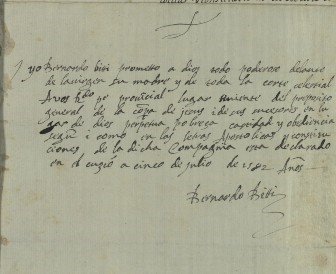 yo Bernardo biti prometto a dios todo poderoso delante
de la virgen su madre y de toda la corte celestial
A vos pe provincial lugar teniente del preposito
general de la compa de jesus i de sus sucesores en lu
gar de dios perpetua pobreza castidad y obediencia
segun i como en las letras Apostolicas y constitu
ciones de la dicha Compañia esta declarado
en el cuzco a cinco de julio de 1582 Años
Bernardo Biti